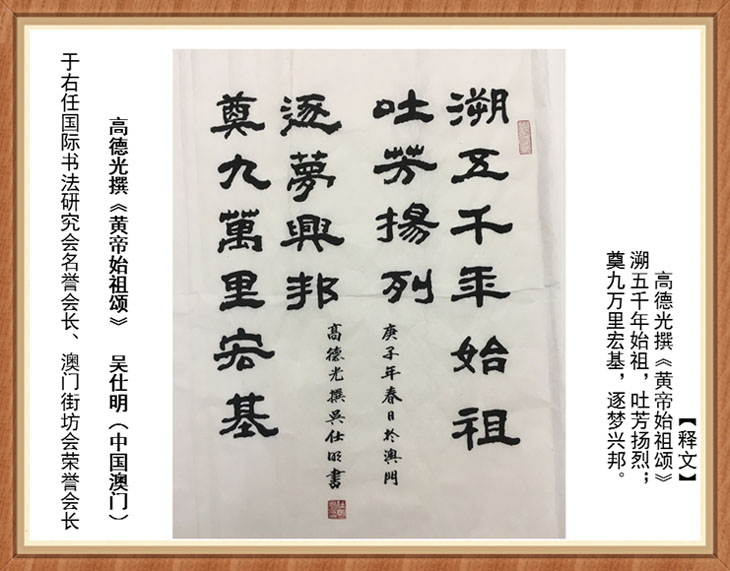 【释文】
高德光撰《黄帝始祖颂》
溯五千年始祖，吐芳扬烈；
奠九万里宏基，逐梦兴邦。
溯五千年始祖
吐芳揚列
庚子年春日於澳門
奠九萬里宏基
逐夢興邦
高德光撰吳仕明書
高德光撰《黄帝始祖颂》 吴仕明（中国澳门）
于右任国际书法研究会名誉会长、澳门街坊会荣誉会长